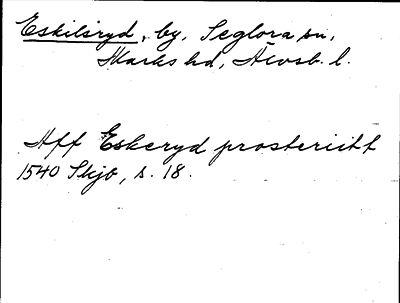 Eskilsryd, by, Seglora sn,
Marks hd, Älvsb. l.
Aff Eskeryd prosteriitt
1540 Skjb, s. 18.